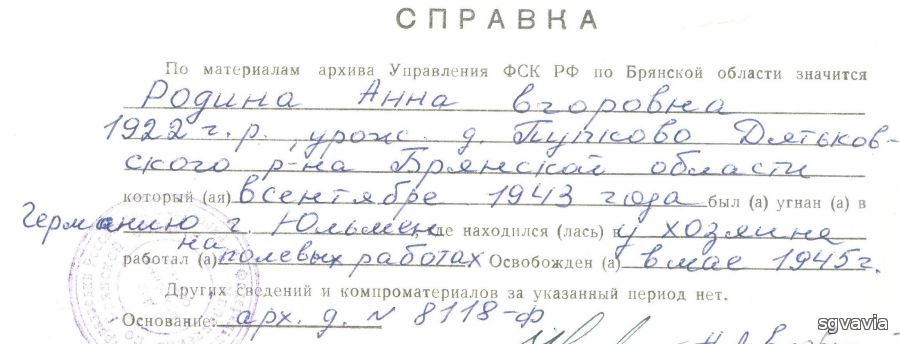 СПРАВКА
По материалам архива Управления ФСК РФ по Брянской области значится
Родина Анна Егоровна
1922 г.р., урож. д. Пупково Дятьков-
ского р-на Брянской области
который (ая) в сентябре 1943 года был (а) угнан (а) в
Германию г. Юльмен где находился (лась) в у хозяина
работал (а) на полевых работах Освобожден (а) в мае 1945 г.
Других сведений и компроматериалов за указанный период нет.
Основание: арх. д. № 8118-ф
sgvavia